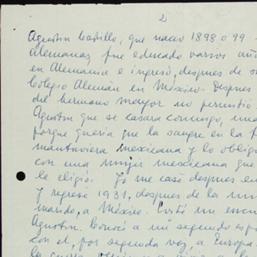 2
Agustin Castillo, que nacio 1898 o 99
Alemanas fue educado varios año
en Alemania e ingresó, despues de s
Colegio Aleman en México. Despues
del hermano mayor no permitio
Agustin que se casara conmigo, una
porque queria que la sangre en la f
mantuviera mexicana y lo obligó
con una mujer mexicana que
le eligió. Yo me casé despues en
y regresé 1931, despues de la mu
marido, a México.
Agustin. Conocí a mi segundo esp
con el, por segunda vez, a Europa